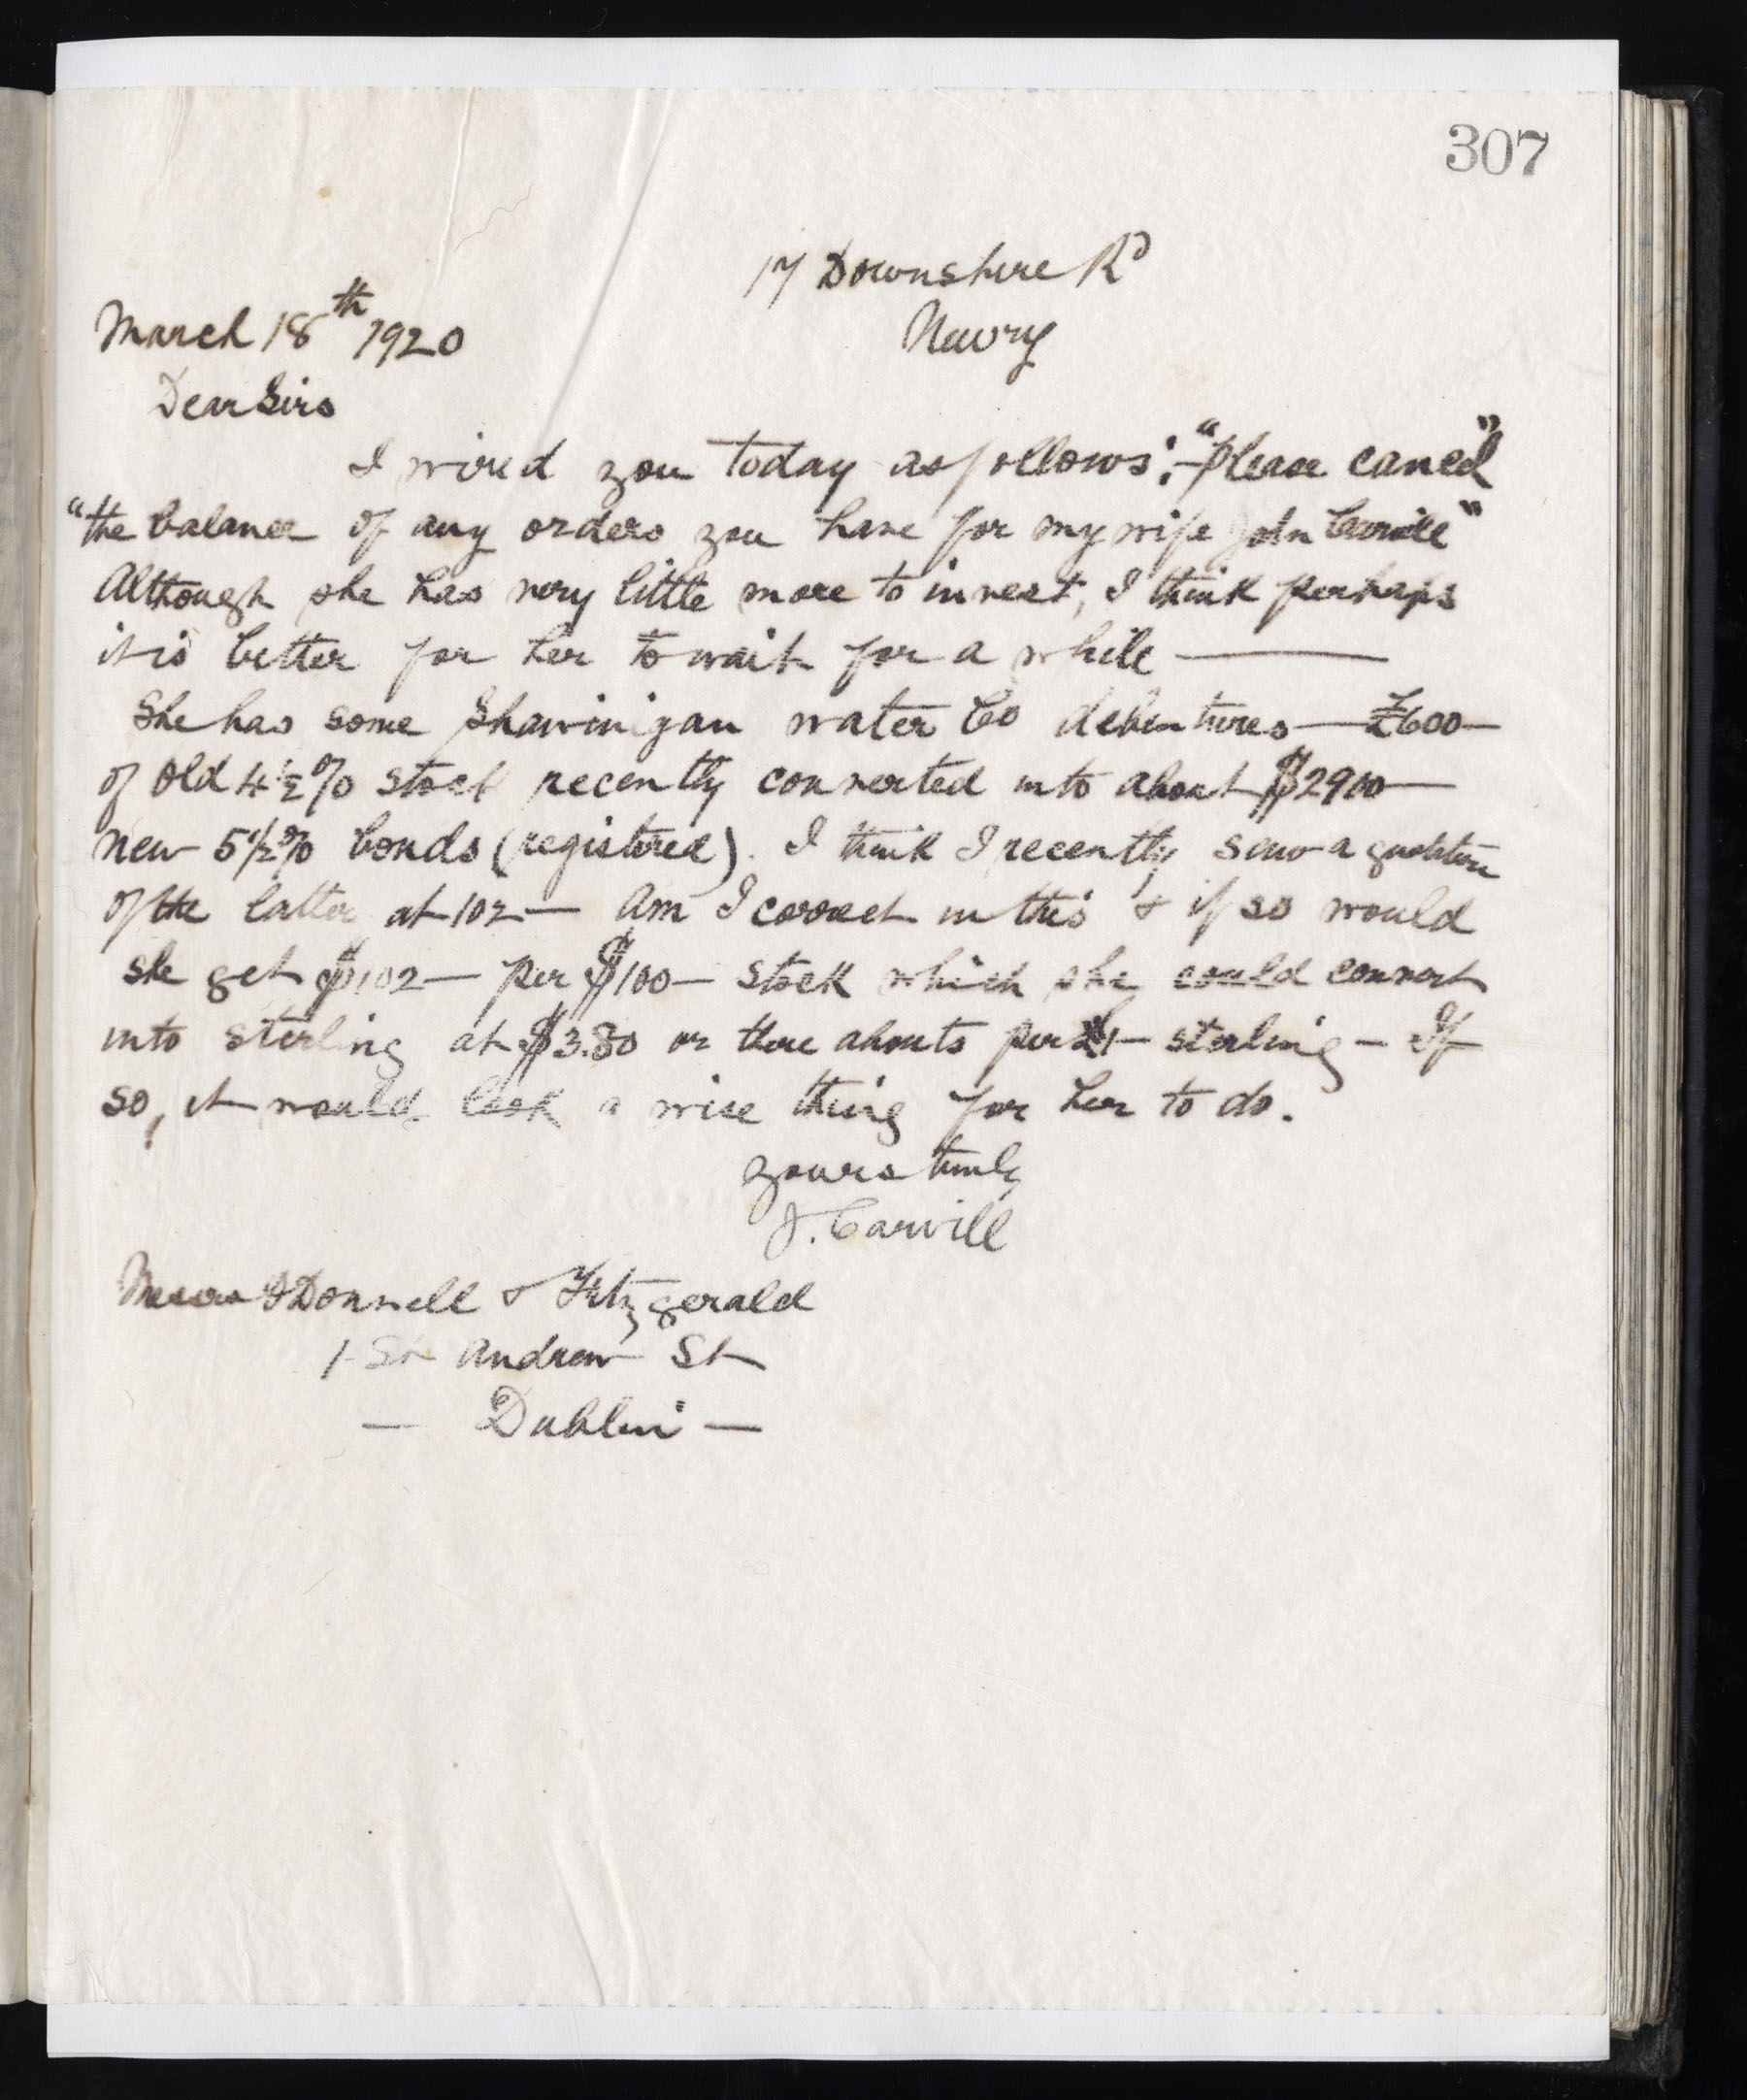 307
17 Downshire Rd
Newry
March 18th 1920
Dear Sirs
I wired you today as follows:- "please cancel"
"the balance of any orders you have for my wife John Carvill"
Although she has very little more to invest, I think perhaps
it is better for her to wait for a while —
She has some Shawinigan water Co debentures — £600 —
of old 4½% stock recently converted into about $2900 —
new 5½% bonds (registered). I think I recently saw a quotation
of the latter at 102 — Am I correct in this & if so would
she get $102 — per $100 — stock which she could convert
into sterling at $3.80 or there abouts per £1 — sterling — If
so, it would look a wise thing for her to do.
Yours truly
J. Carvill
Messrs O'Donnell & Fitzgerald
1 St Andrew St
— Dublin —